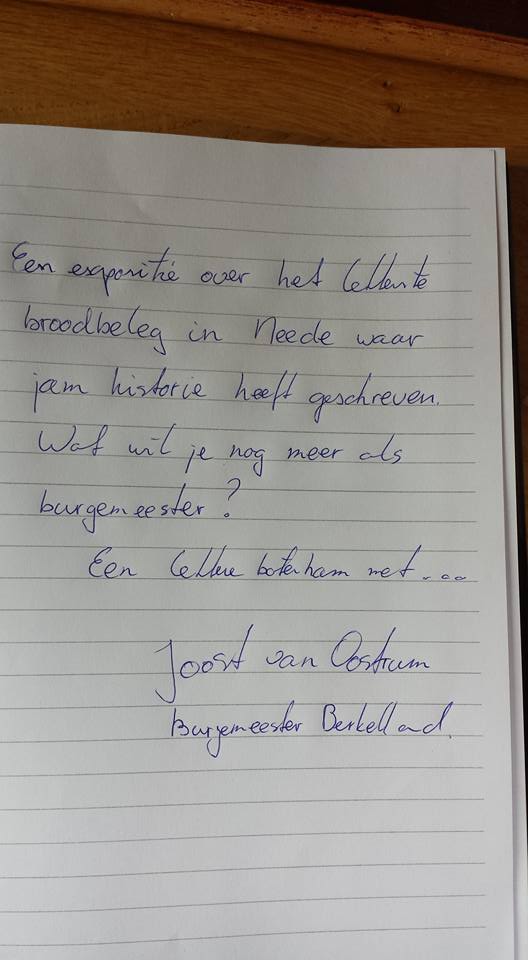 Een expositie over het lekkerste
broodbeleg in Neede waar
jam historie heeft geschreven.
Wat wil je nog meer als
burgemeester?
Een lekkere boterham met....
Joost van Oostrum
Burgemeester Berkelland.